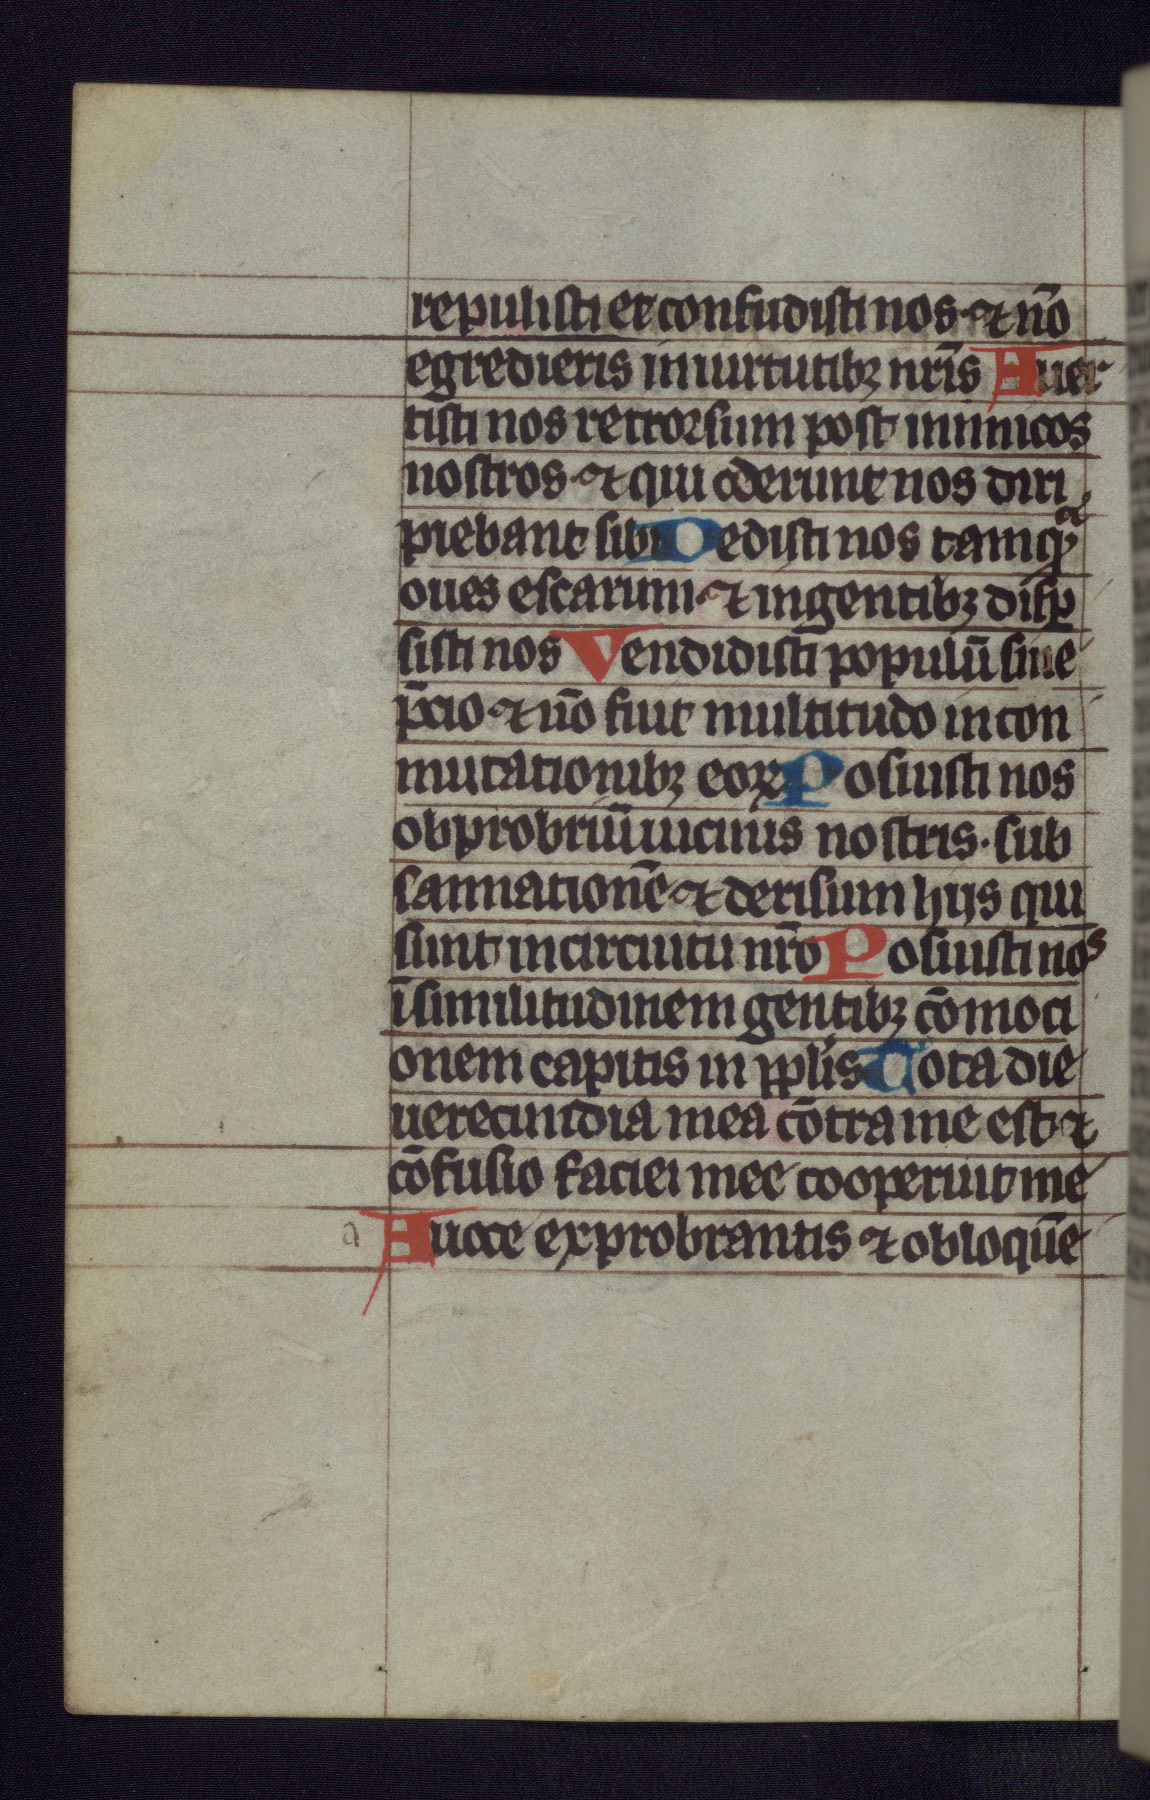 repulisti et confudisti nos · ⁊ nō
egredieris in uirtutibꝫ nr̄is Auer
tisti nos retrorsum post inimicos
nostros · ⁊ qui oderunt nos diri
piebant sibi Dedisti nos tamqᷓ
oues escarum · ⁊ in gentibꝫ disꝑ
sisti nos Vendidisti populū sine
p̄cio · ⁊ nō fuit multitudo in con
mutationibꝫ eoꝝ Posuisti nos
obprobriū uicinis nostris · sub
sannationē · ⁊ derisum hijs qui
sunt in circuitu nr̄o Posuisti nos
ī similitudinem gentibꝫ cōmoti
onem capitis in pplīs Tota die
uerecundia mea cōtra me est · ⁊
cōfusio faciei mee cooperuit me
a Auoce exprobrantis ⁊ obloquē